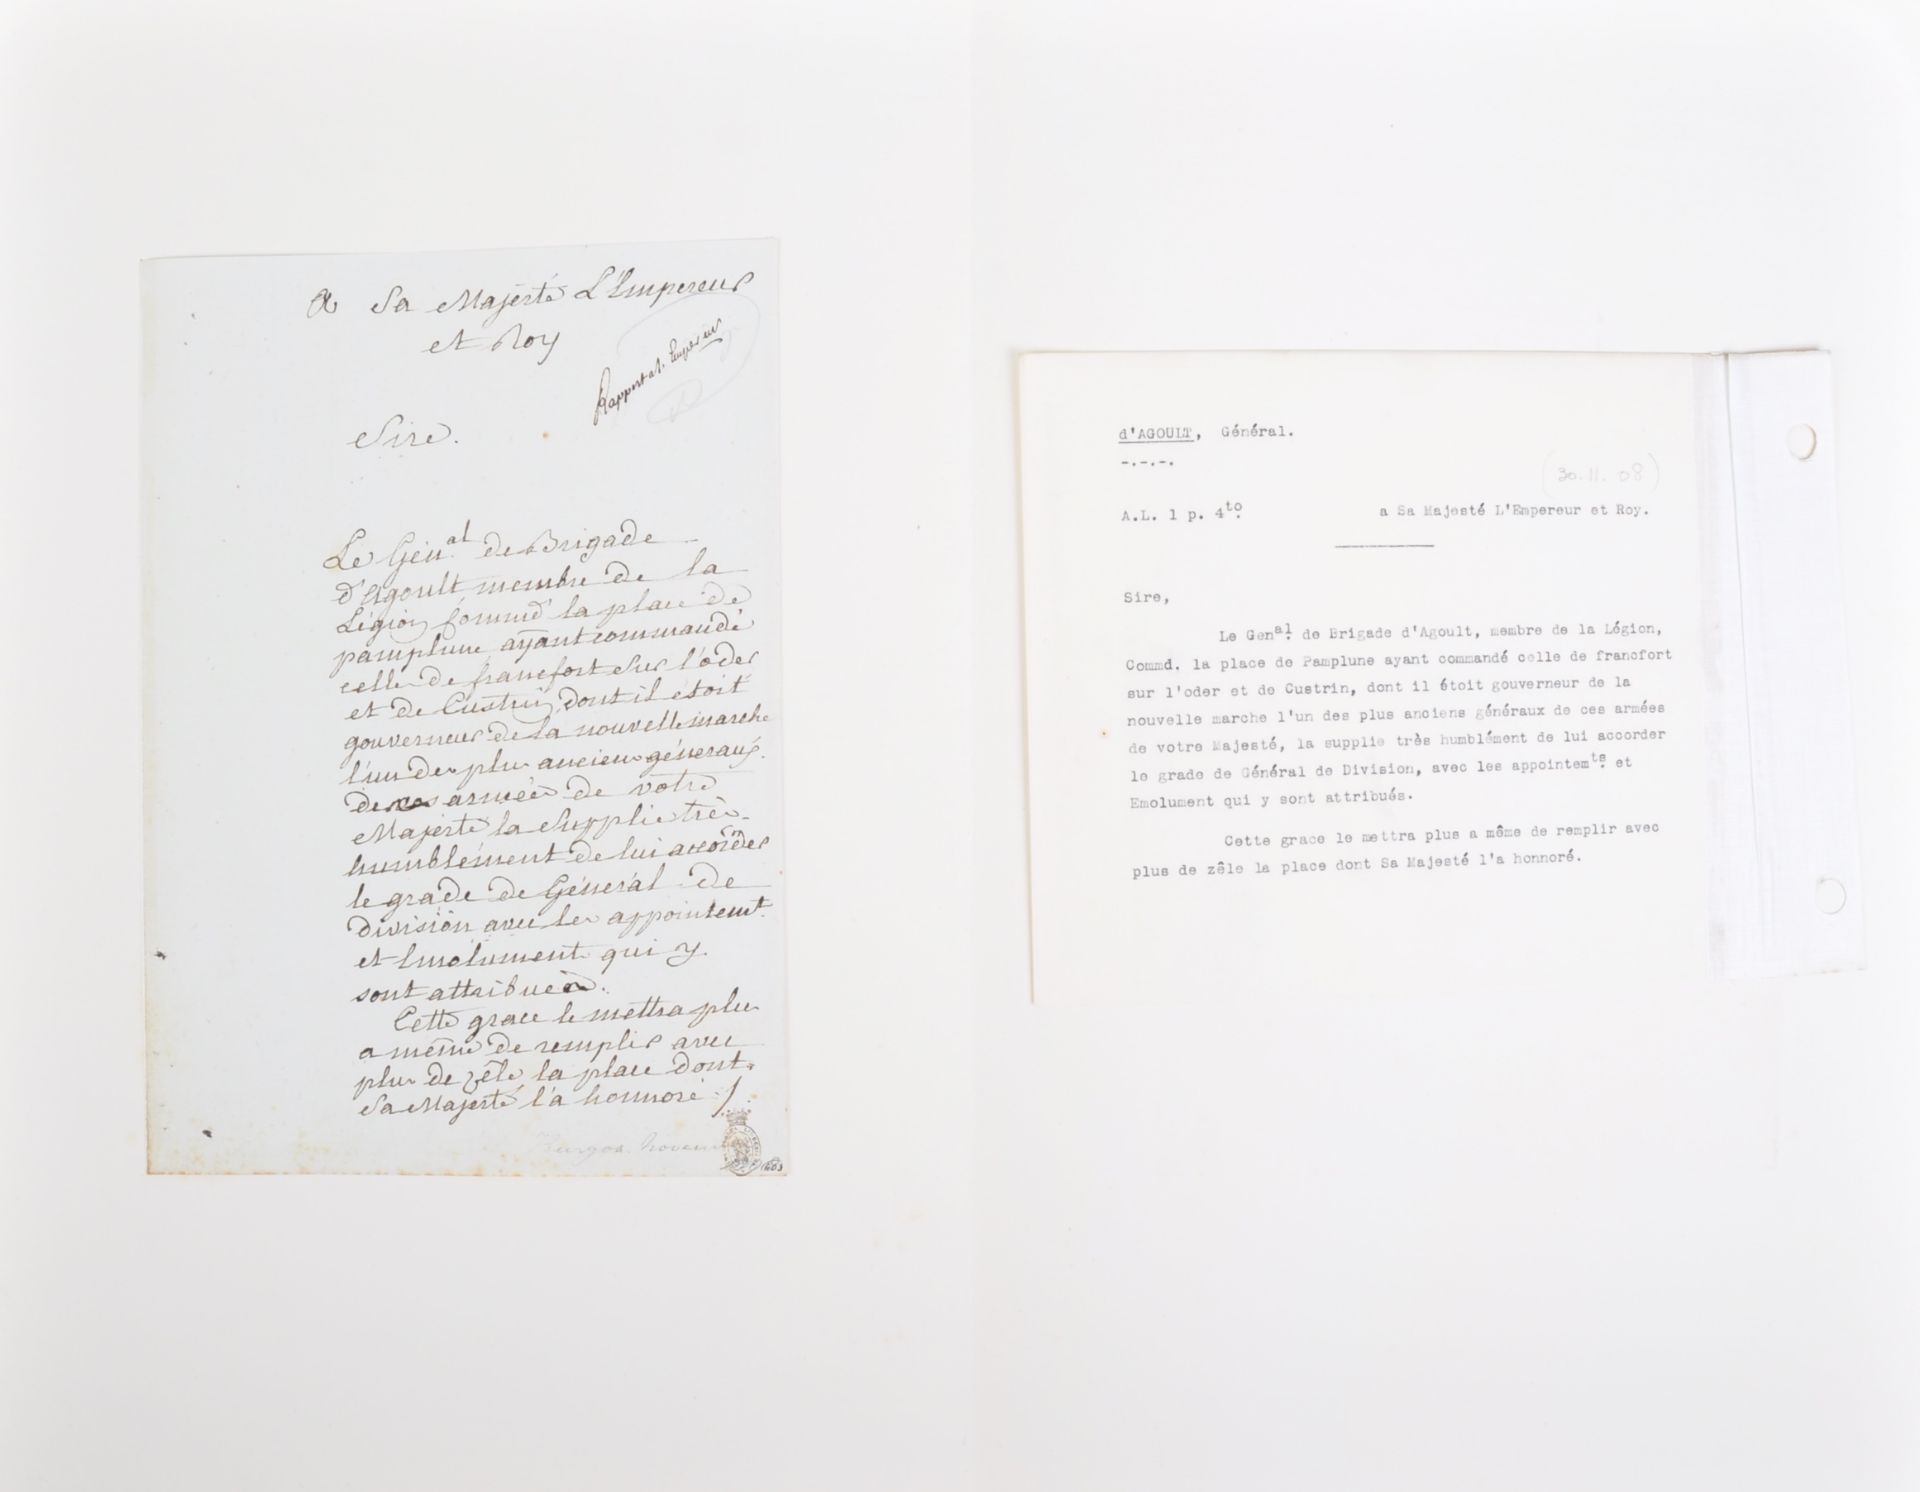 a Sa Majesté L'Empereur
et Roy
Rapport à l'Empereur
Sire.
Le Gén.al de Brigade
d'Agoult membre de la
Légion Commd la place de
pamplune ayant commandé
celle de francfort sur l'oder
et de Custrin, dont il étoit
gouverneur de la nouvelle marche
l'un des plus anciens généraux
de ces armées de votre
Majesté la supplie très
humblement de lui accorder
le grade de Général de
division avec les appointemt.
et Emolument qui y
sont attribués.
Cette grace le mettra plus
a même de remplir avec
plus de zêle la place dont
Sa Majesté l'a honnoré ./.
Burgos
d'AGOULT, Général.
-.-.-.
(30.11.08)
A.L. 1 p. 4to. a Sa Majesté L'Empereur et Roy.
Sire,
Le Genal. de Brigade d'Agoult, membre de la Légion,
Commd. la place de Pamplune ayant commandé celle de francfort
sur l'oder et de Custrin, dont il étoit gouverneur de la
nouvelle marche l'un des plus anciens généraux de ces armées
de votre Majesté, la supplie très humblément de lui accorder
le grade de Général de Division, avec les appointemts. et
Emolument qui y sont attribués.
Cette grace le mettra plus a même de remplir avec
plus de zêle la place dont Sa Majesté l'a honnoré.